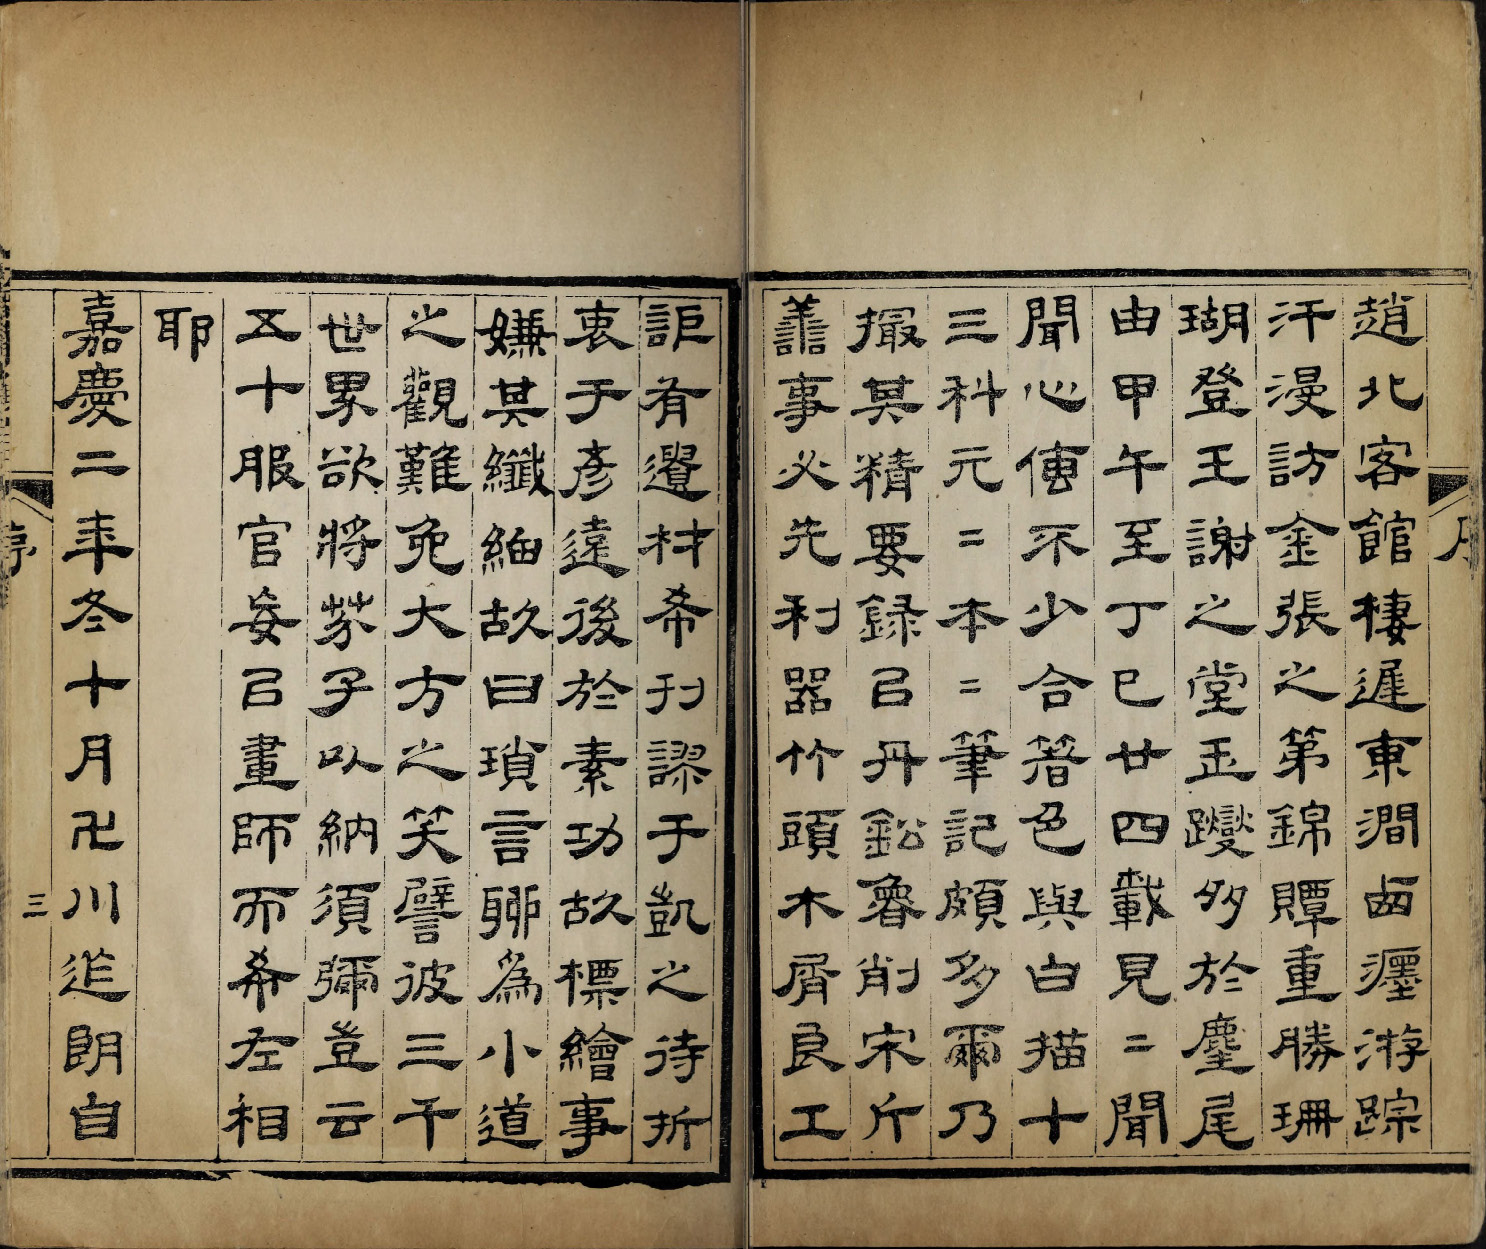 趙北客館棲遲東澗西瀍游踪
汗漫訪金張之第錦贉重勝珊
瑚登王謝之堂玉躞多於麈尾
由甲午至丁巳廿四載見〻聞
聞心傳不少合著色與白描十
三科元〻本〻筆記頗多爾乃
撮其精要録㠯丹鉛魯削宋斤
譱事必先利器竹頭木屑良工
詎有遺材希刊謬于凱之待折
衷于彥遠後於素功故標繪事
嫌其纖細故曰瑣言聊為小道
之觀難免大方之笑譬彼三千
世界欲將芥子以納須彌豈云
五十服官妄㠯畫師而希左相
耶
嘉慶二年冬十月卍川迮朗自
序
三